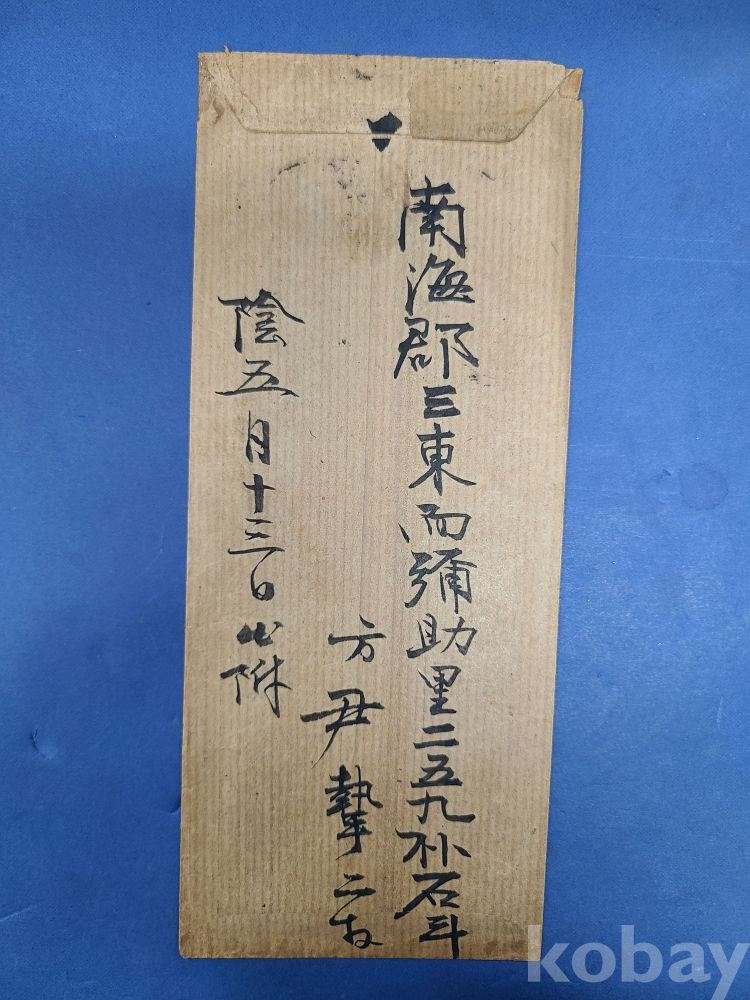 南海郡三東面彌助里二五九朴石斗
方尹摯二拜
陰五月十三日出附
kobay